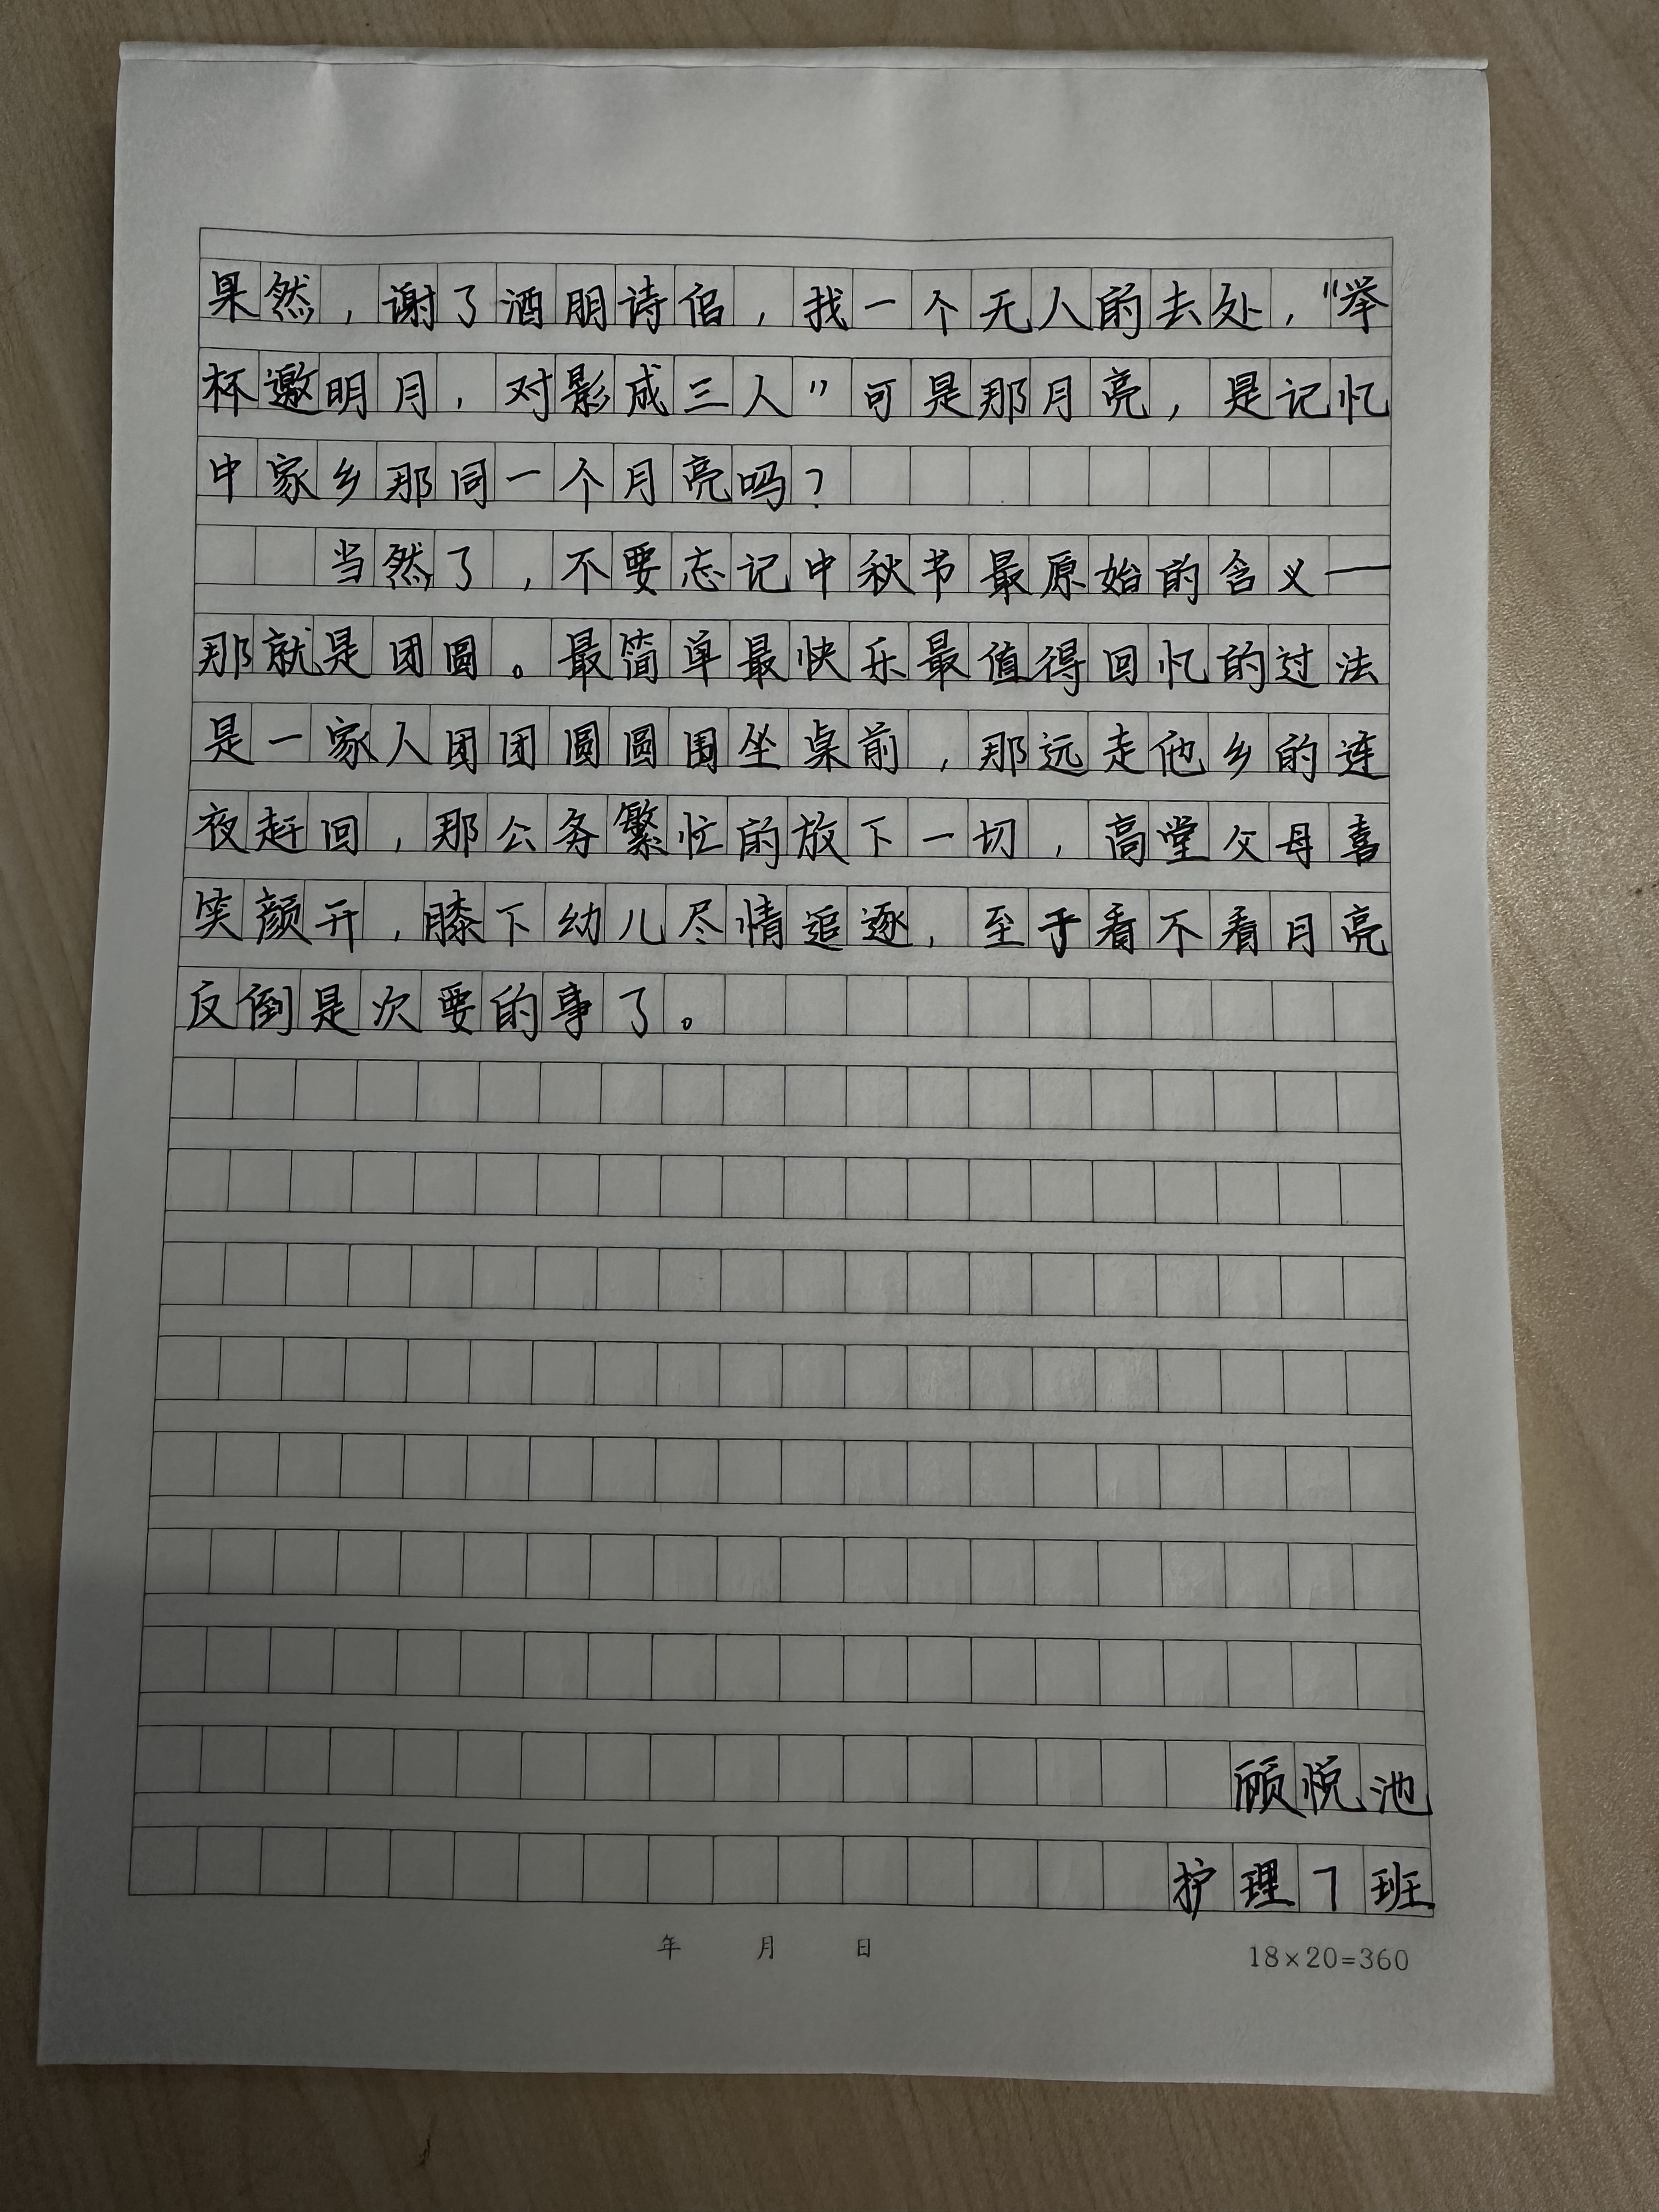 果然，谢了酒朋诗侣，找一个无人的去处，“举
杯邀明月，对影成三人”可是那月亮，是记忆
中家乡那同一个月亮吗？
当然了，不要忘记中秋节最原始的含义—
那就是团圆。最简单最快乐最值得回忆的过法
是一家人团团圆圆围坐桌前，那远走他乡的连
夜赶回，那公务繁忙的放下一切，高堂父母喜
笑颜开，膝下幼儿尽情追逐，至于看不看月亮
反倒是次要的事了。
顾悦池
护理7班
年 月 日
18×20=360